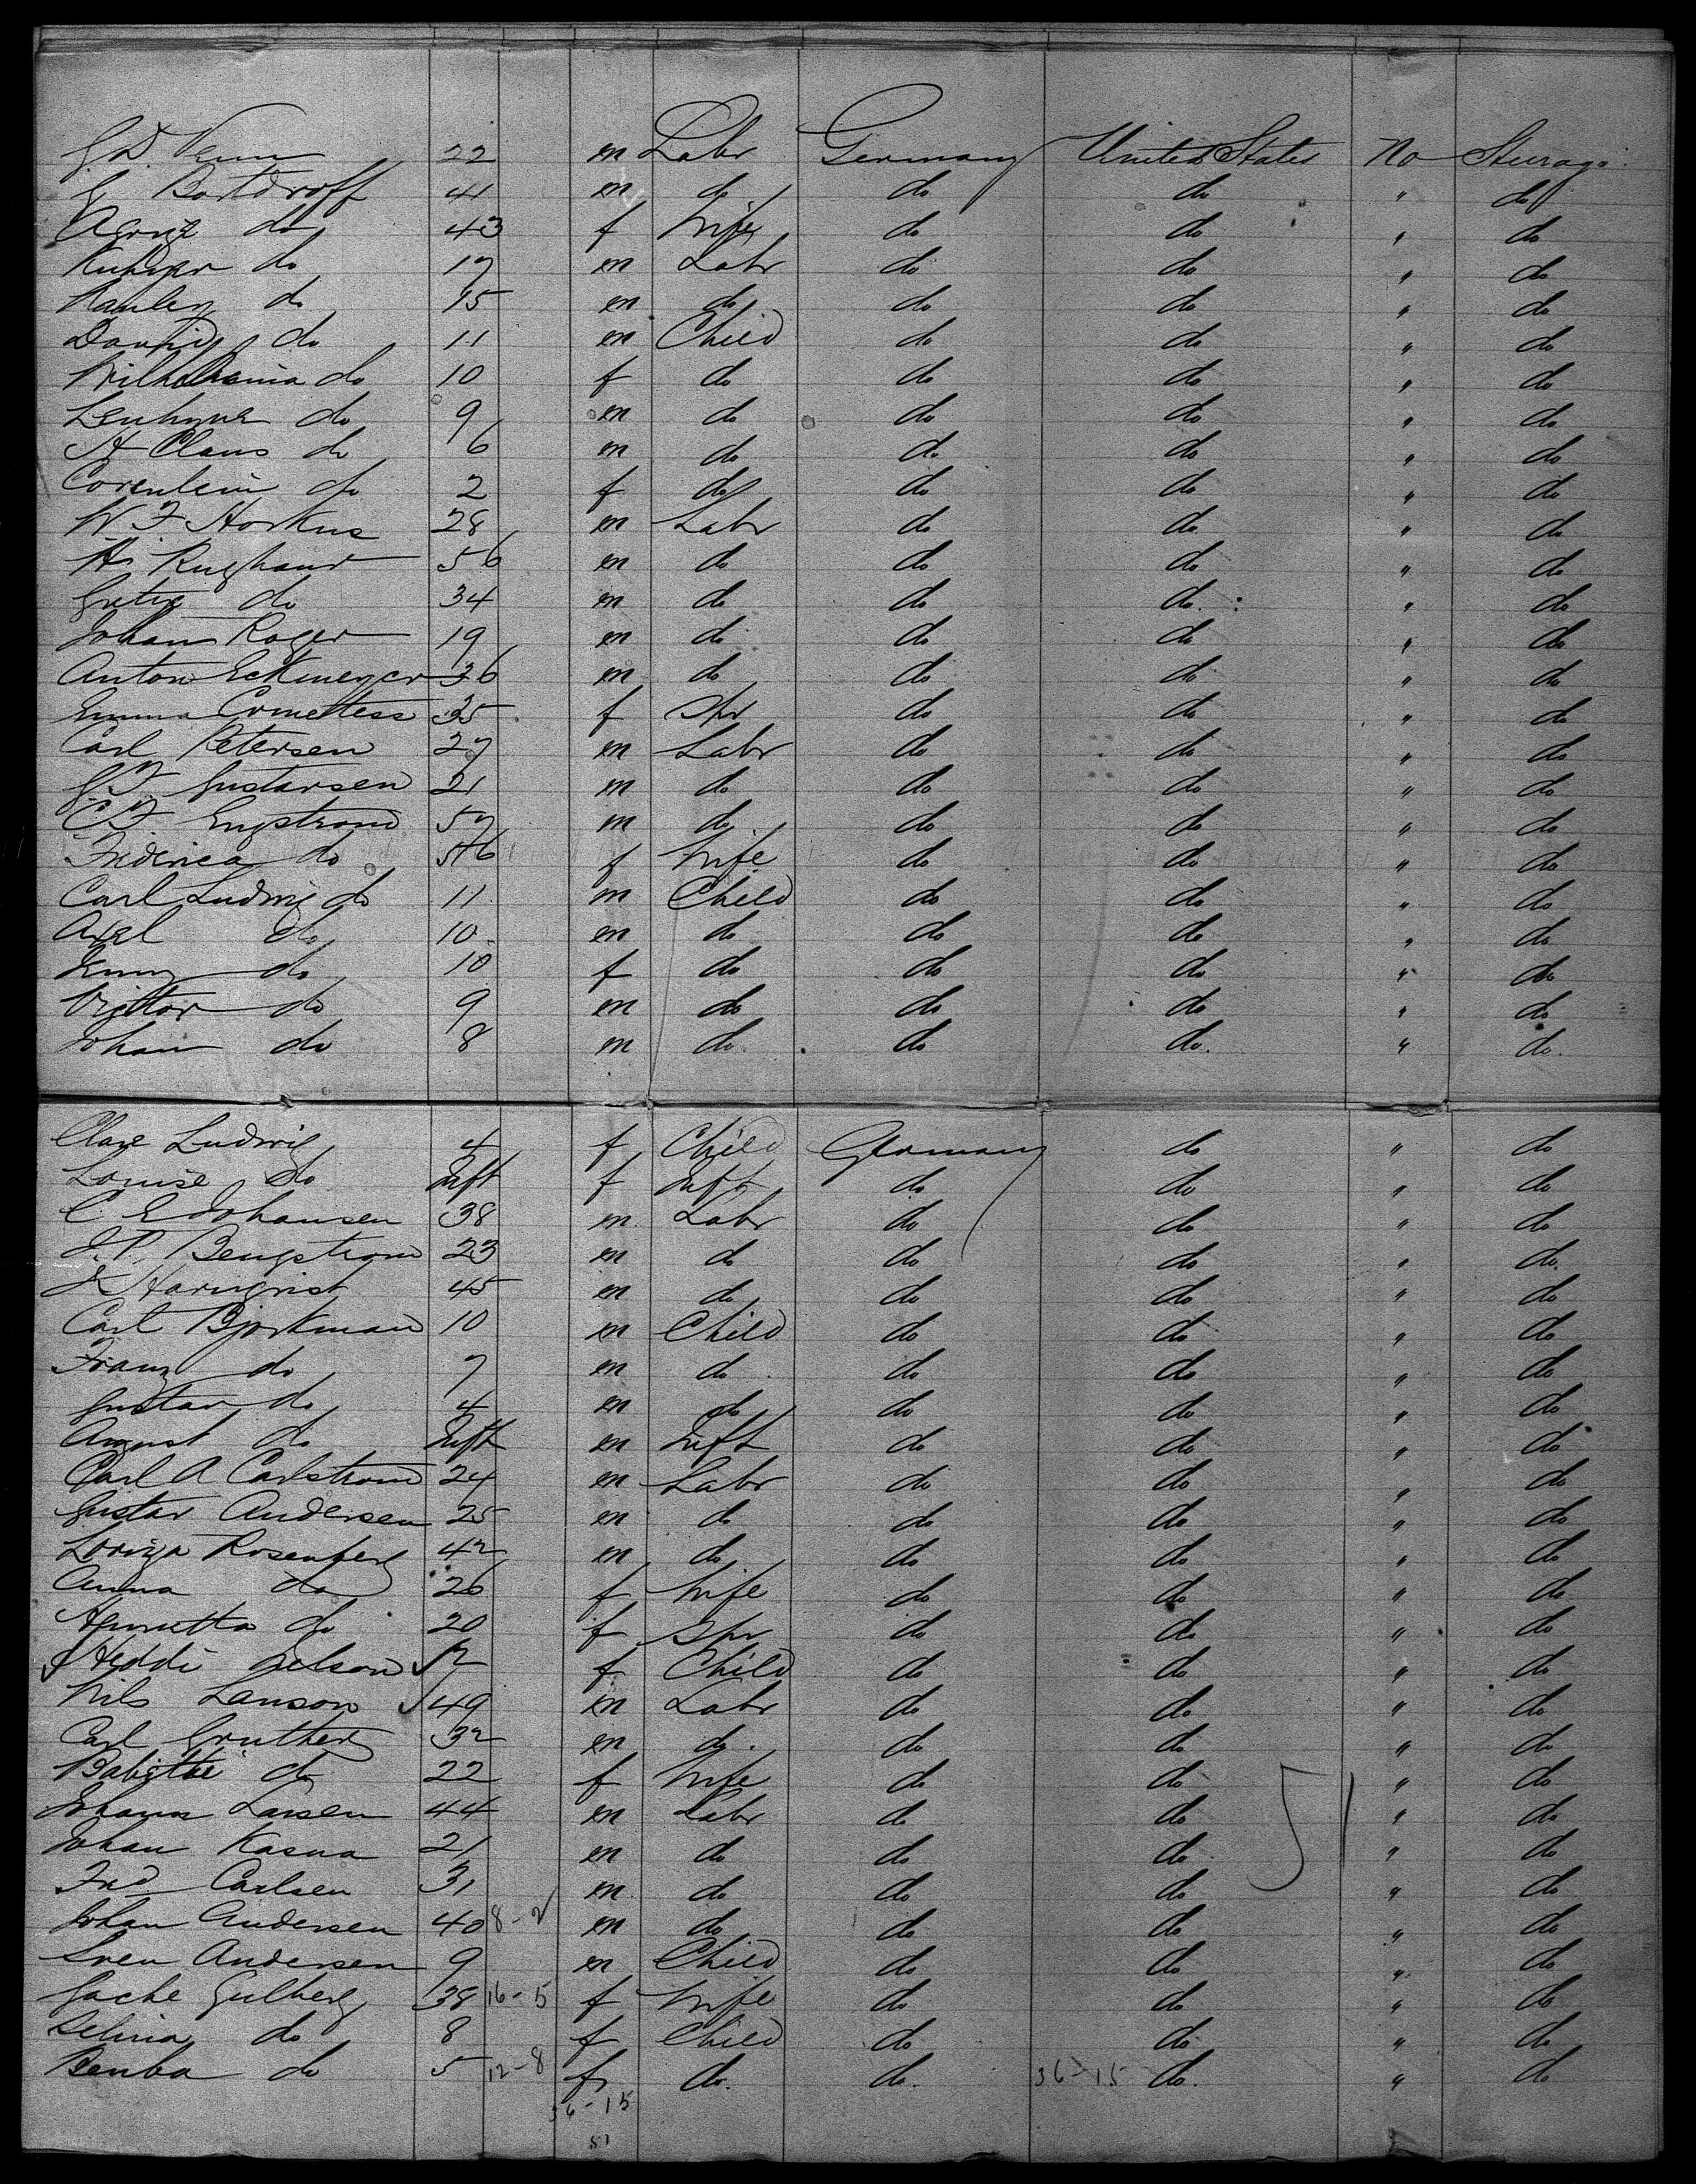 22 m Labr Germany United States No Steerage
41 m do do do " do
do 43 f Wife do do " do
do 17 m Labr do do " do
do 15 m do do do " do
do 11 m Child do do " do
Wilhelmina do 10 f do do do " do
do 9 m do do do " do
H Claus do 6 m do do do " do
do 2 f do do do " do
W. F Horkus 28 m Labr do do " do
H. 56 m do do do " do
do 34 m do do do " do
Johan Roger 19 m do do do " do
Anton Eckmeyer 36 m do do do " do
Emma 35 f Spr do do " do
Carl Petersen 27 m Labr do do " do
Gustavsen 21 m do do do " do
C F Engstrom 57 m do do do " do
Frederica do 56 f Wife do do " do
Carl Ludwig do 11 m Child do do " do
Axel do 10 m do do do " do
Jenny do 10 f do do do " do
Vigttor do 9 m do do do " do
Johan do 8 m do do do " do
Ludwig 4 f Child Germany do " do
Louise do Inft f Inft do do " do
C. E Johansen 38 m Labr do do " do
J. P. Bengstrom 23 m do do do " do
45 m do do do " do
Carl Bjorkman 10 m Child do do " do
Franz do 7 m do do do " do
Gustav do 4 m do do do " do
August do Inft m Inft do do " do
Carl A Carlstrom 24 m Labr do do " do
Gustav Andersen 25 m do do do " do
Rosenberg 42 m do do do " do
Anna do 26 f Wife do do " do
Henrietta do 20 f Spr do do " do
Heddi Nelson 2 f Child do do " do
Nils Lanson 49 m Labr do do " do
Carl Gruther 32 m do do do " do
do 22 f Wife do do " do
Johann Larsen 44 m Labr do do " do
Johan Kasna 21 m do do do 51 " do
Fred Carlsen 31 m do do do " do
Johan Andersen 40 8-2 m do do do " do
Sven Andersen 9 m Child do do " do
Gulberg 38 16-5 f Wife do do " do
Selma do 8 f Child do do " do
do 5 12-8 f do do 36-15 do " do
36-15
51